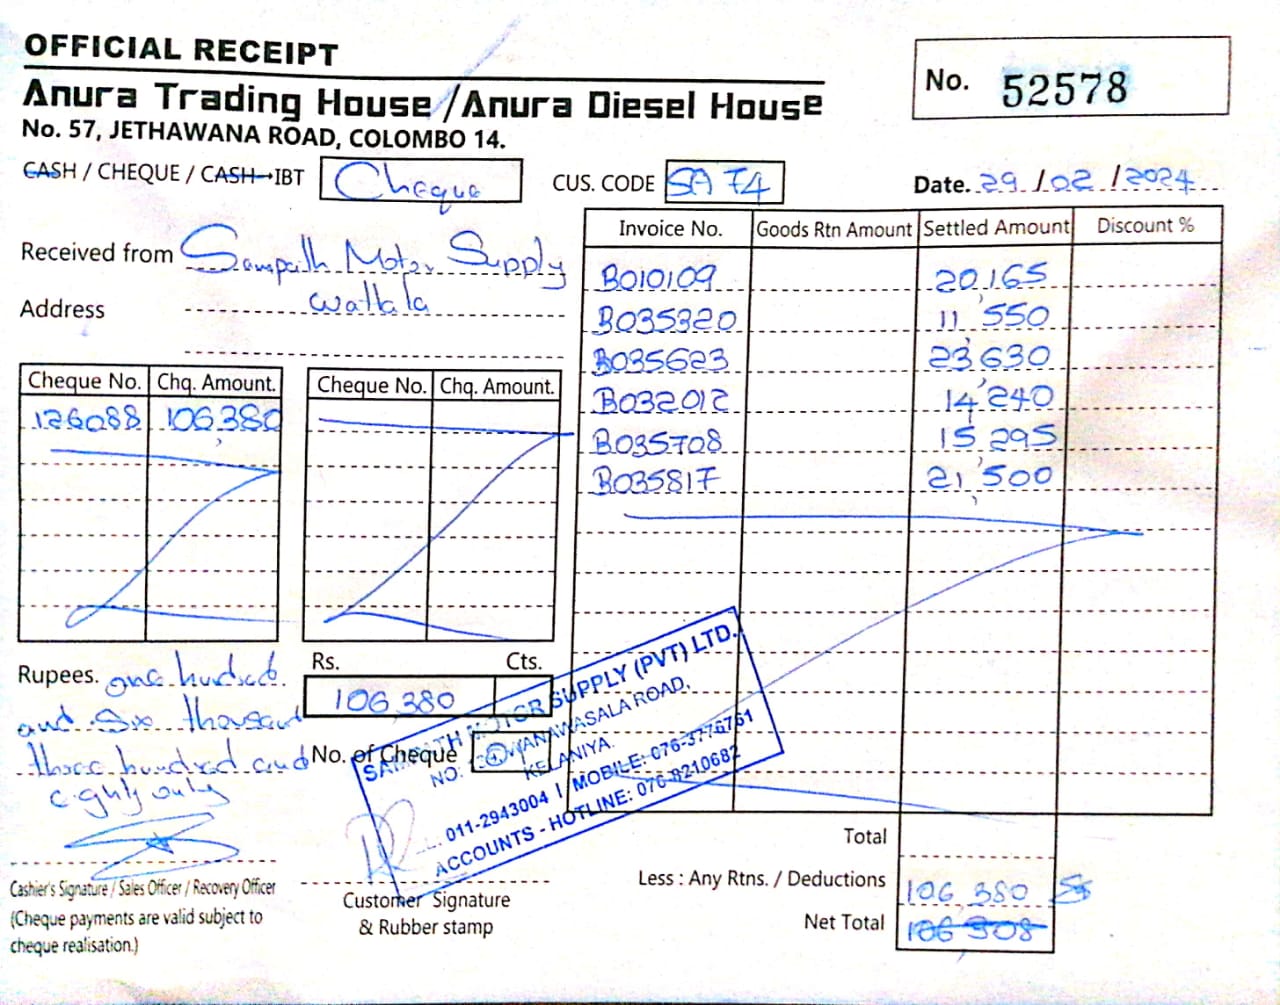 OFFICIAL RECEIPT
No. 52578
Anura Trading House / Anura Diesel House
No. 57, JETHAWANA ROAD, COLOMBO 14.
CASH / CHEQUE / CASH IBT Cheque
CUS. CODE SA 74
Date. 29/02/2024
Received from Sampath Motor Supply
Address Wattala
Cheque No. Chq. Amount.
126088 106,380
Cheque No. Chq. Amount.
Invoice No. Goods Rtn Amount Settled Amount Discount %
B010109 20,165
B035320 11,550
B035623 23,630
B032012 14,240
B035708 15,295
B035817 21,500
Rupees. one hundred
and six thousand
three hundred and
eighty only
Rs. Cts.
106,380
No. of Cheque 01
SAMPATH MOTOR SUPPLY (PVT) LTD.
NO. WANAWASALA ROAD,
KELANIYA.
011-2943004 | MOBILE: 076-3776761
ACCOUNTS - HOTLINE: 076-8210682
Cashier's Signature / Sales Officer / Recovery Officer
(Cheque payments are valid subject to
cheque realisation.)
Customer Signature
& Rubber stamp
Total
Less : Any Rtns. / Deductions 106,380
Net Total 106 308